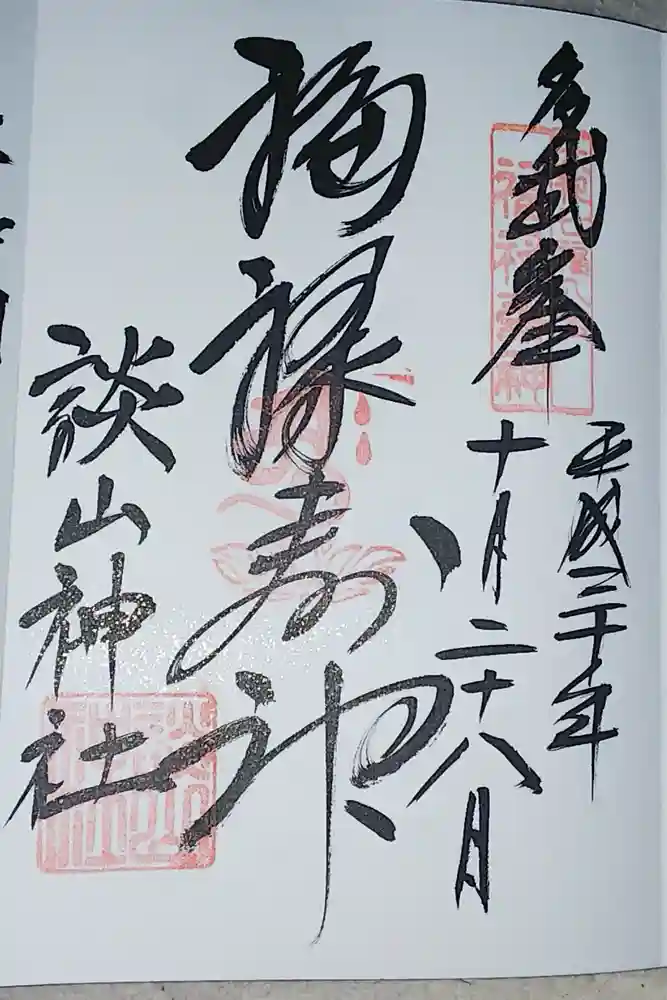 多武峯
平成三十年
十月二十八月
福禄寿神
談山神社